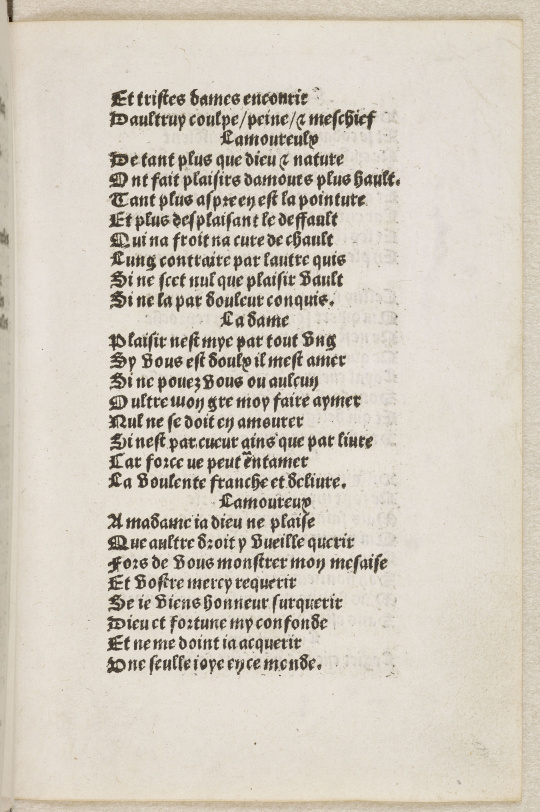 Et tristes dames encourir
Daultruy coulpe/peine/⁊ meschief
Lamoureulx
De tant plus que dieu ⁊ nature
Ont fait plaisirs damours plus hault.
Tant plus aspre en est la pointure
Et plus desplaisant le deffault
Qui na froit na cure de chault
Lung contraire par lautre quis
Si ne scet nul que plaisir vault
Si ne la par douleur conquis.
La dame
Plaisir nest mye par tout vng
Sy vous est doulx il mest amer
Si ne pouez vous ou aulcun
Oultre mon gre moy faire aymer
Nul ne se doit en amourer
Si nest par.cueur ains que par liure
Car force ue peut entamer
La voulente franche et deliure.
Lamoureux
A madame ia dieu ne plaise
Que aultre droit y vueille querir
Fors de vous monstrer mon mesaise
Et vostre mercy requerir
Se ie viens honneur surquerir
Dieu et fortune my confonde
Et ne me doint ia acquerir
Vne seulle ioye en ce monde.